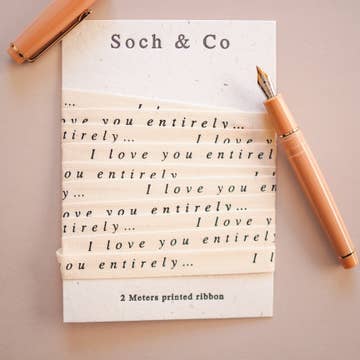 Soch & Co
...
ove you entirely...
tirely... I love y
I love you entirel
ou entirely
y... I love you en
love you entirely...
tirely... I love y
I love you entirely
ou entirely... I l
2 Meters printed ribbon